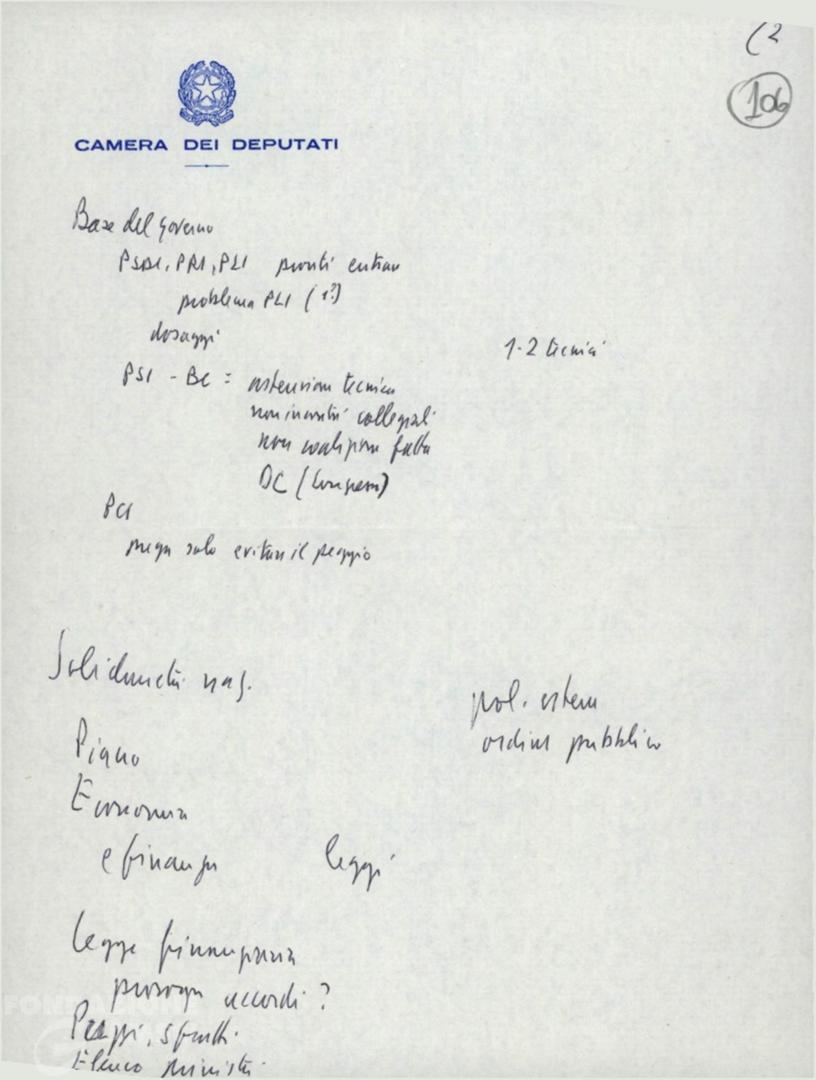 (2
106
CAMERA DEI DEPUTATI
Base del governo
PSDI, PRI, PLI pronti entrare
problema PLI (1?)
dosaggi
1-2 tecnici
PSI - BC = astensione tecnica
non incontri collegiali
non coalizione fatta
DC (Congresso)
PCI
prega solo evitare il peggio
Solidarietà naz.
pol. estera
ordine pubblico
Piano
Economia
e finanza leggi
legge finanziaria
proroga accordi?
Prezzi, sfratti
Elenco ministri
FONDAZIONE